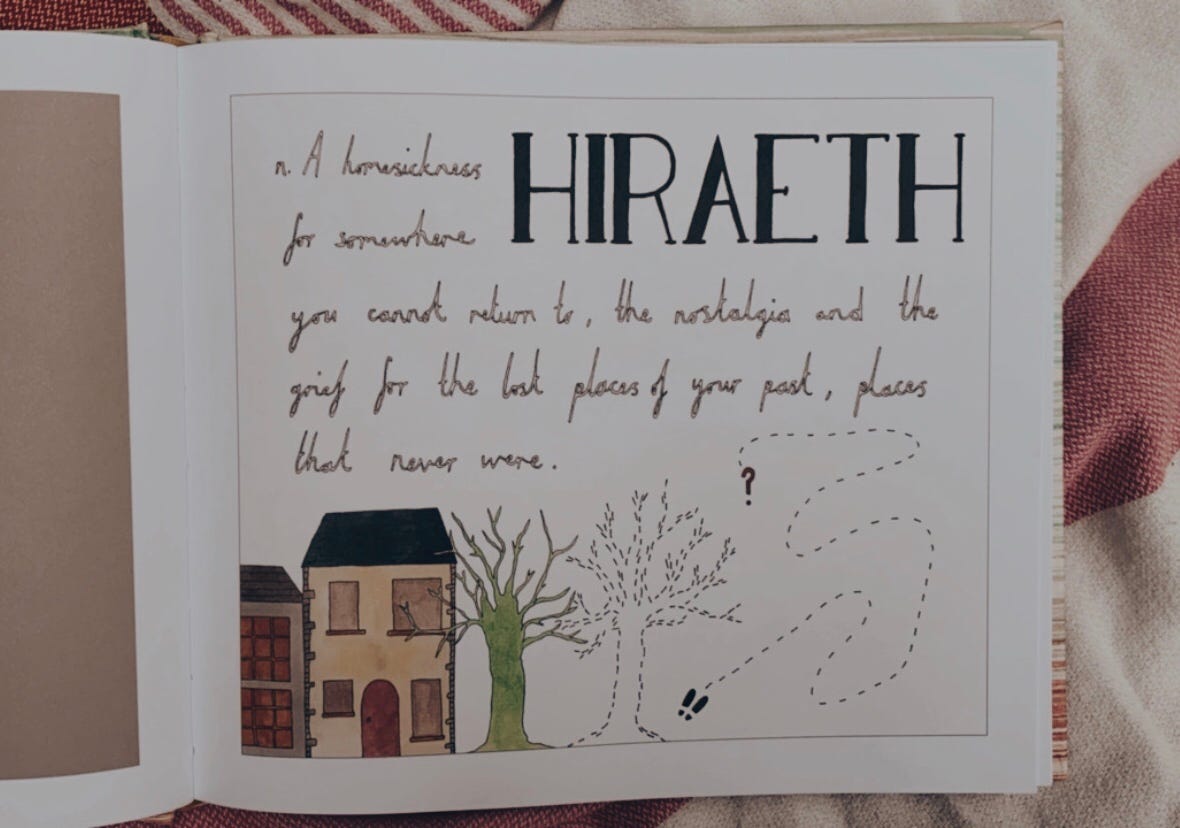 HIRAETH
n. A homesickness
for somewhere
you cannot return to, the nostalgia and the
grief for the lost places of your past, places
that never were.
?